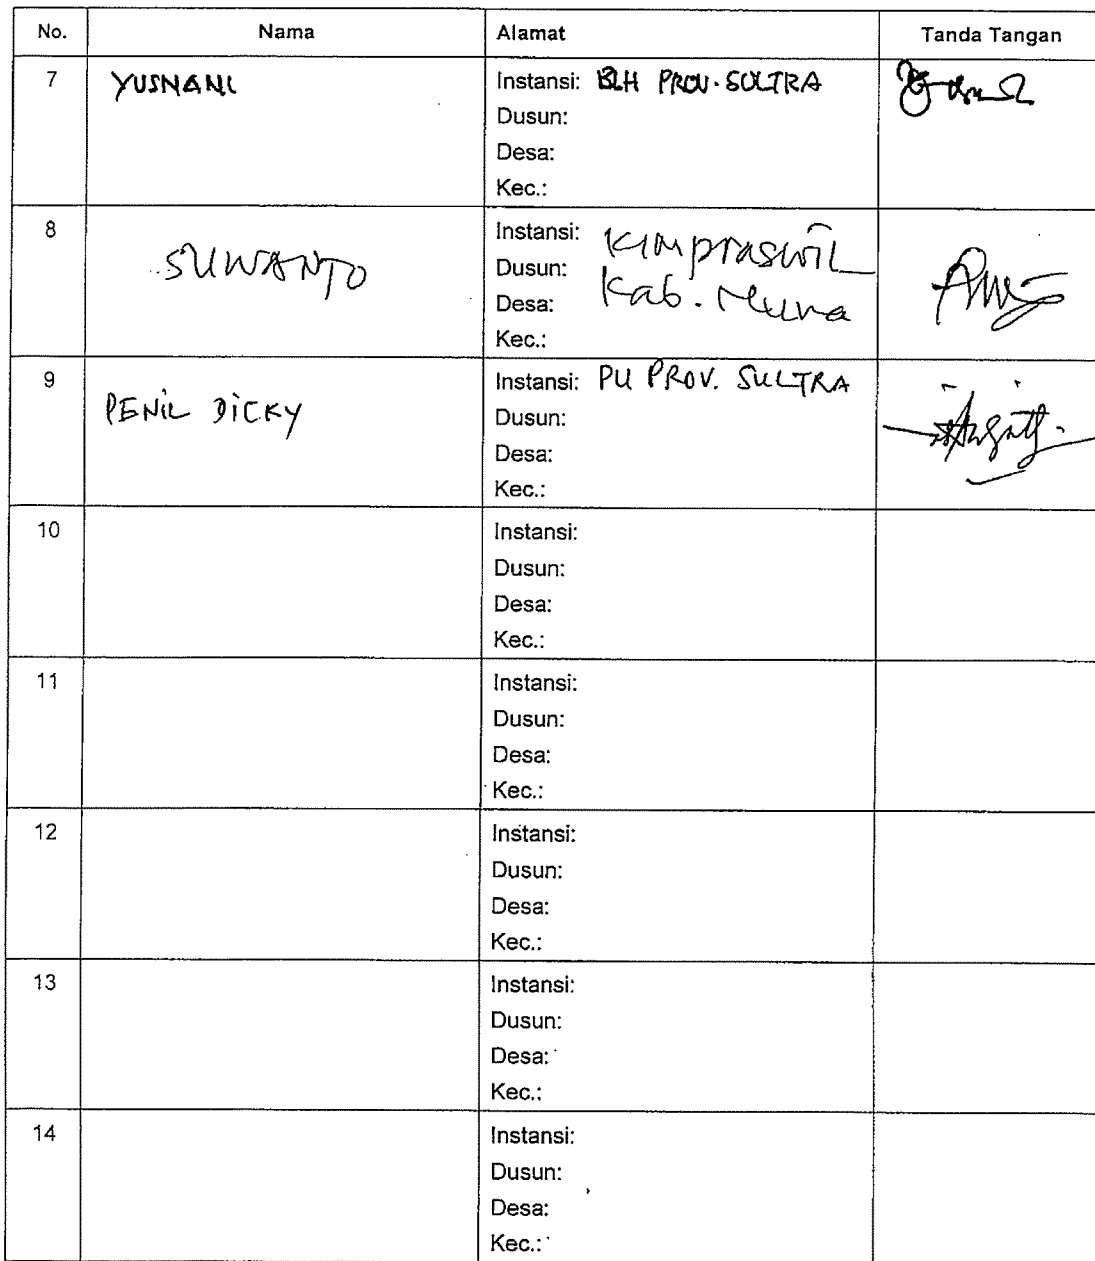 No. Nama Alamat Tanda Tangan
7 YUSNANI Instansi: BLH PROV. SULTRA
Dusun:
Desa:
Kec.:
8 SUWANTO Instansi: Kimpraswil
Dusun: Kab. Muna
Desa:
Kec.:
9 PENIL DICKY Instansi: PU PROV. SULTRA
Dusun:
Desa:
Kec.:
10 Instansi:
Dusun:
Desa:
Kec.:
11 Instansi:
Dusun:
Desa:
Kec.:
12 Instansi:
Dusun:
Desa:
Kec.:
13 Instansi:
Dusun:
Desa:
Kec.:
14 Instansi:
Dusun:
Desa:
Kec.: